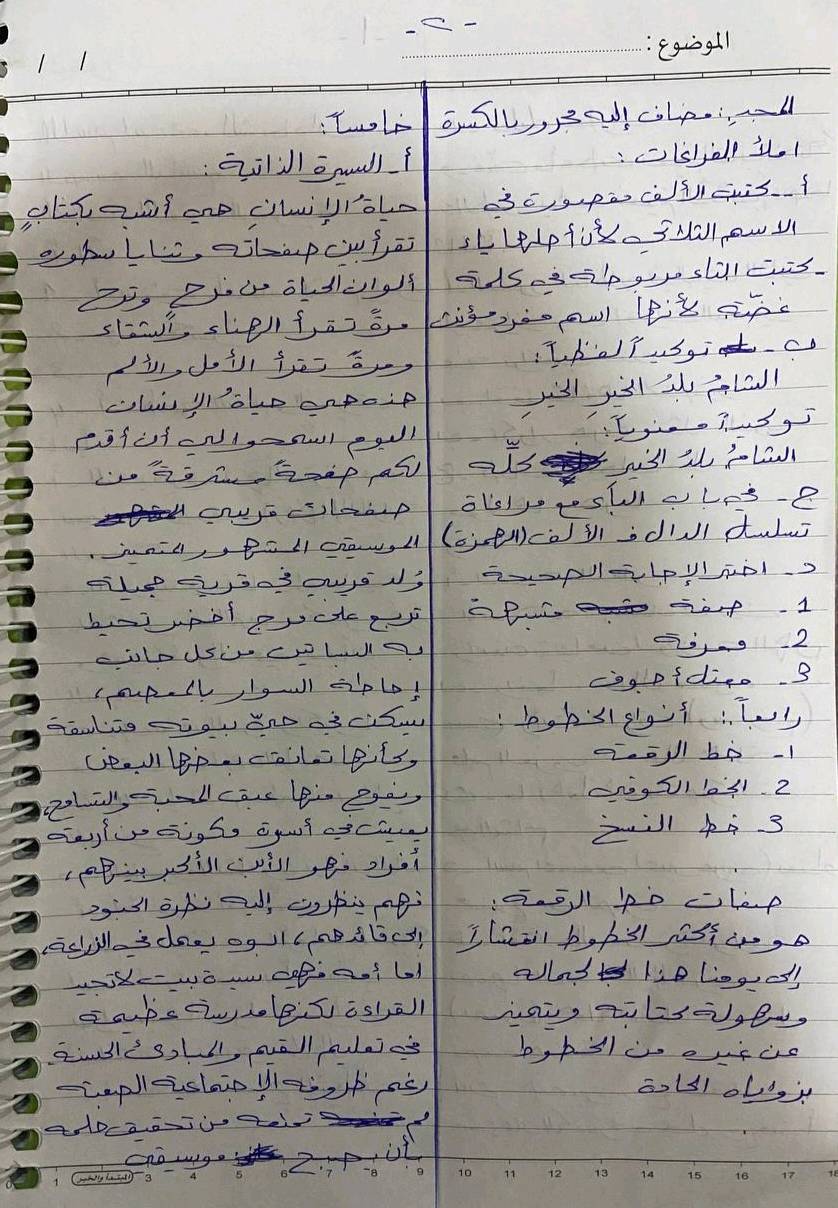 - ٢ -
الموضوع :
/ /
المجدِ : مضاف إليه مجرور بالكسرة
املأ الفراغات :
أ - كتبت الألف مقصورة في
الاسم الثلاثي لأن أصلها ياء
- كتبت التاء مربوطة في كلمة
غضّة لأنها اسم مفرد مؤنث
ب - توكيداً لفظياً :
الشامُ بلدُ الخيرِ الخيرِ
توكيداً معنوياً :
الشامُ بلدُ الخير كلّه
ج - في باب الباء مع مراعاة
تسلسل الدال ف الألف (الهمزة)
د - اختر الإجابة الصحيحة
1 - صفة مشبهة
2 - معرفة
3 - معتل أجوف
رابعاً : أنواع الخطوط :
1 - خط الرقعة
2 - الخط الكوفي
3 - خط النسخ
صفات خط الرقعة :
هو من أكثر الخطوط انتشاراً
إلى يومنا هذا لجماله
وسهولة كتابته ويتميز
عن غيره من الخطوط
بزواياه الحادة
خامساً :
أ - السيرة الذاتية :
حياةُ الإنسانِ هي أشبه بكتابٍ
تقرأ بين صفحاته وثنايا سطوره
ألوان الحياة من فرح وترح
مرةً تقرأ الهناء والشقاء
ومرةً تقرأ الأمل والألم
هذه هي حياةُ الإنسان
اليوم اسمحوا لي أن أقدم
لكم صفحةً مشرقةً من
صفحات قريبي
الموسيقي المشهور المتميز .
وُلد قريبي في قرية جميلة
تربع على مرج أخضر تحيط
به البساتين من كل جانب
إحاطة السوار بالمعصم ،
يسكن في حيّ بيوته متناسقة
وكأنها تعانقت بعضها البعض
ويفوح منها عبق المحبة والتسامح ،
يعيش في أسرة مكونة من أربعة
أفراد فهو الأبن الأكبر بينهم ،
فهم ينظرون إليه نظرة الجنود
إلى قائدهم ، ابوه يعمل في الزراعة ،
اما أمه فهي سيدة بيت لا تجيد
القراءة لكنها مدرسة عظيمة
في تعليم القيم والمبادئ الحسنة
رغم ظروفه الإجتماعية الصعبة
لم تمنعه من تحقيق حلمه
بأن يصبح موسيقي
0 1 المبتدأ والخبر 3 4 5 6 7 8 9 10 11 12 13 14 15 16 17 18